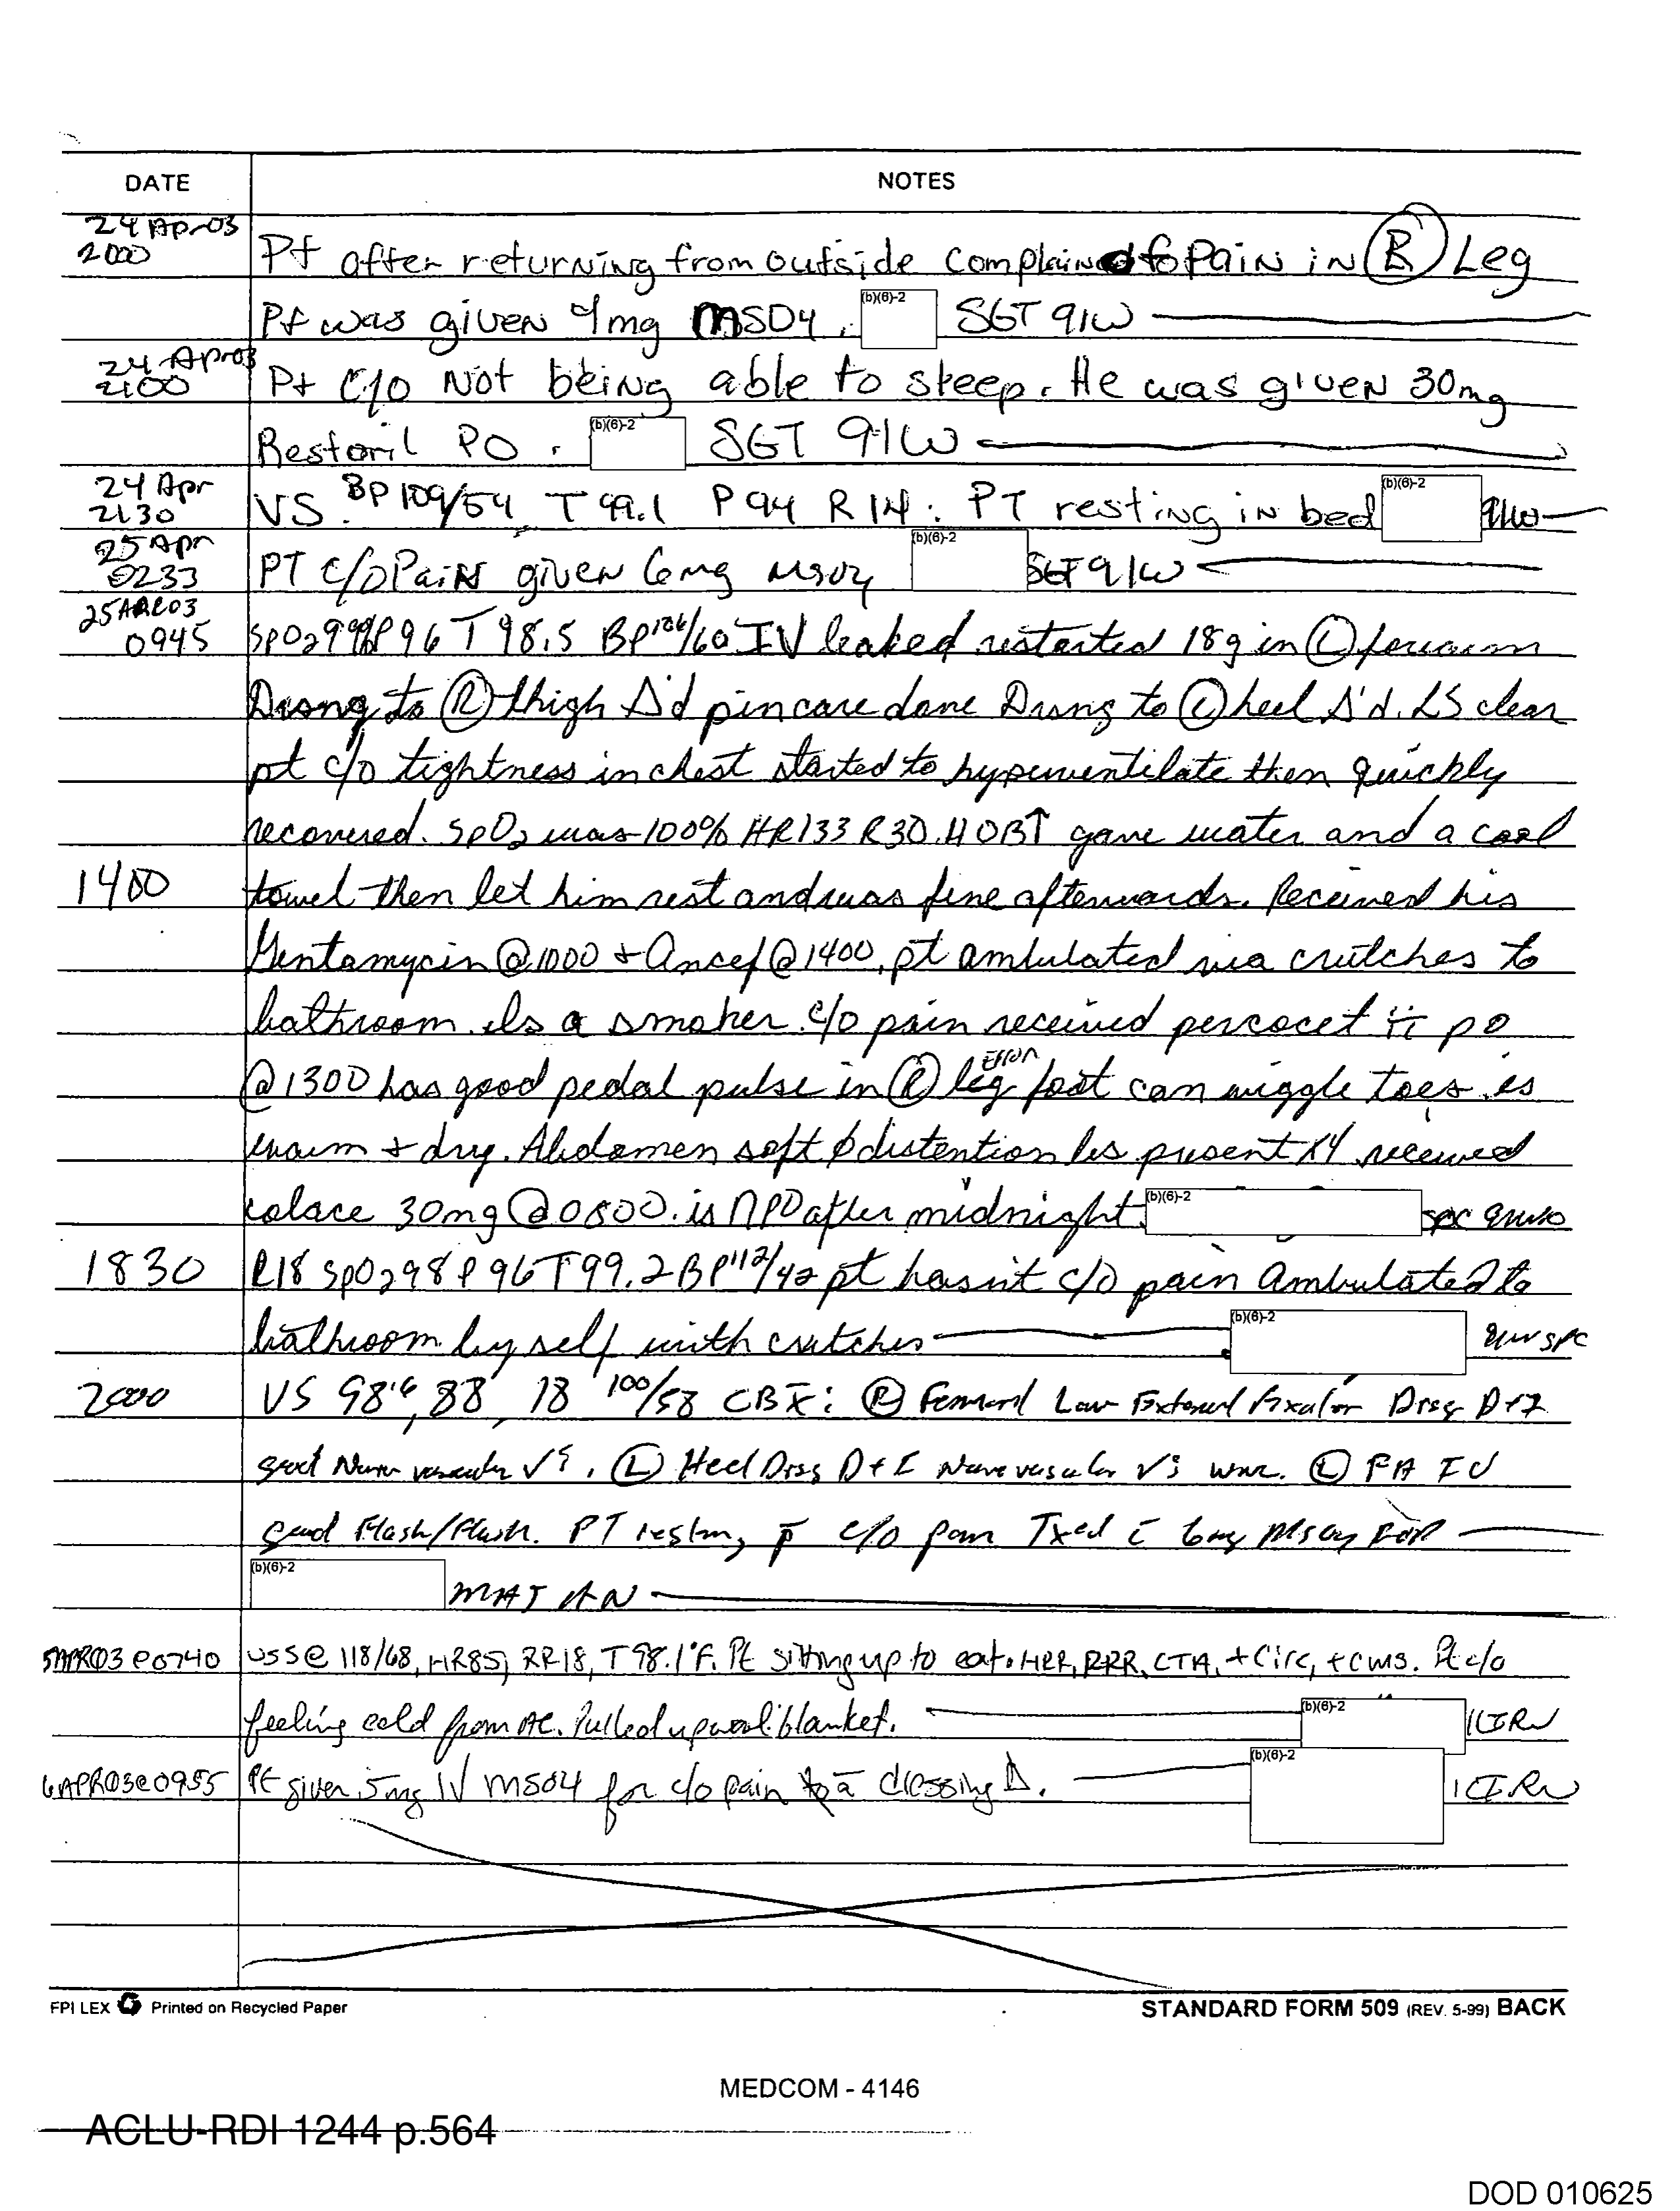 DATE NOTES
24 Apr 03
2000 Pt after returning from outside complained of Pain in (R) Leg
Pt was given 4mg MSO4. (b)(6)-2 SGT 91W
24 Apr 03
2100 Pt c/o Not being able to sleep. He was given 30mg
Restoril PO. (b)(6)-2 SGT 91W
24 Apr
2130 VS. BP 109/54 T 99.1 P 94 R 14. PT resting in bed (b)(6)-2 91W
25 Apr
0233 PT c/o Pain given 6mg MSO4 (b)(6)-2 SGT 91W
25 APR 03
0945 SpO2 99% P96 T 98.5 BP 106/60 IV leaked restarted 18g in (L) forearm
Drsng to (R) thigh Δ'd pin care done Drsng to (L) heel Δ'd. LS clear
pt c/o tightness in chest started to hyperventilate then quickly
recovered. SpO2 was 100% HR 133 R 30. HOB↑ gave water and a cool
1400 towel then let him rest and was fine afterwards. Received his
Gentamycin @ 1000 + Ancef @ 1400. pt ambulated via crutches to
bathroom. Is a smoker. c/o pain received percocet ii po
@ 1300 has good pedal pulse in (R) leg error foot can wiggle toes. is
warm + dry. Abdomen soft ø distention bs present x4 received
colace 30mg @ 0800. is NPO after midnight. (b)(6)-2 spc 91W
1830 R18 SpO2 98 P 96 T 99.2 BP 112/42 pt hasn't c/o pain Ambulated to
bathroom by self with crutches (b)(6)-2 91W spc
2000 VS 98.6, 88, 18 100/58 (R) Femoral External Fixator Drsg D+I
good Neurovascular √s. (L) Heel Drsg D+I Neurovascular √s WNL. (L) FA IV
good Flash/Flush. PT resting p̄ c/o pain Txed c̄ 6mg MSO4
(b)(6)-2 MAJ AN
APR03 @0740 VSS @ 118/68, HR85, RR18, T 98.1°F. Pt sitting up to eat. RRR, CTA, +Circ, +cms. Pt c/o
feeling cold from AC. Pulled up wool blanket. (b)(6)-2 1LT RN
6APR03@0955 Pt given 5mg IV MSO4 for c/o pain ā dressing Δ. (b)(6)-2 1LT RN
FPI LEX Printed on Recycled Paper STANDARD FORM 509 (REV. 5-99) BACK
MEDCOM - 4146
ACLU-RDI 1244 p.564
DOD 010625